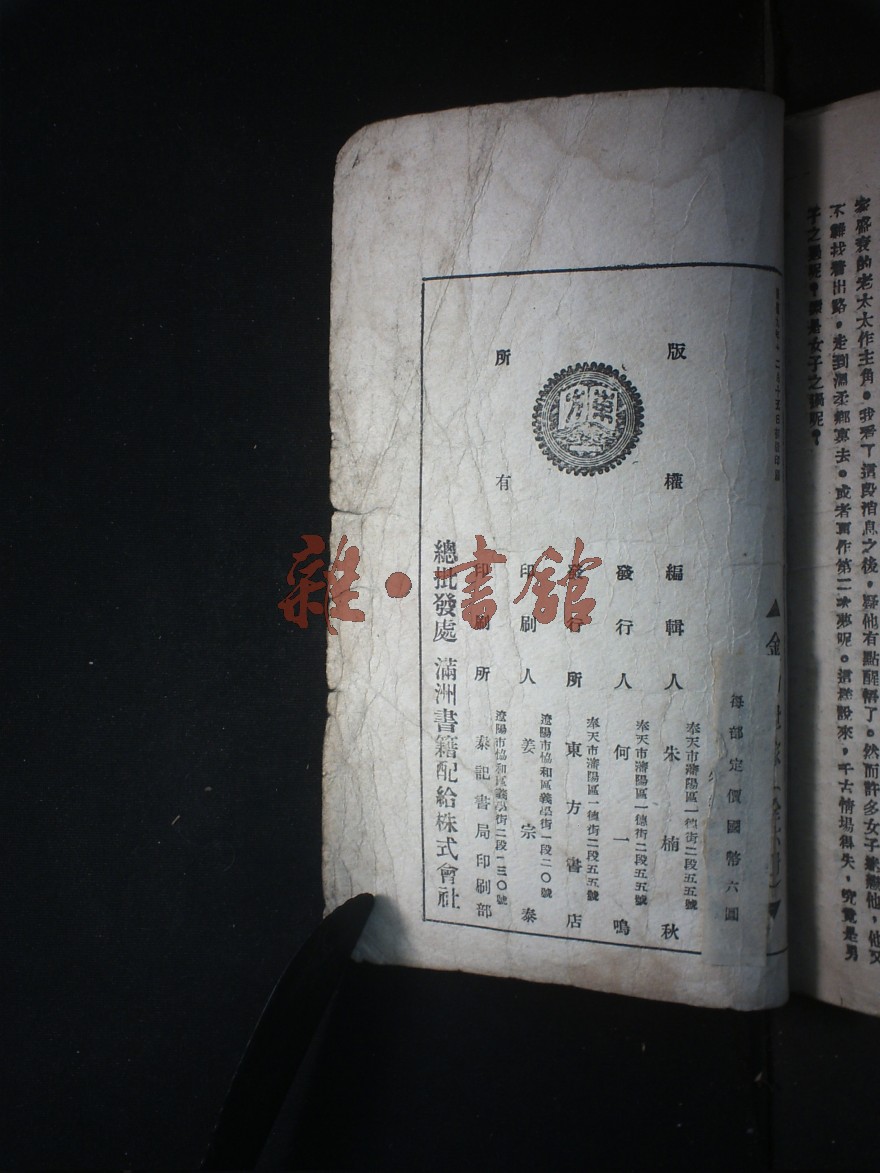 宏盛衰的老太太作主角。我看了這段消息之後，疑他有點醒悟了。然而許多女子繼戀他，他又
不歸找着出路，走到溫柔鄉裏去。或者再作第二次夢呢。這樣說來，千古情場得失，究竟是男
子之禍呢？還是女子之禍呢？
▲金
每部定價國幣六圓
版權所有
編輯人 奉天市瀋陽區一德街二段五五號 朱楠秋
發行人 奉天市瀋陽區一德街二段五五號 何一鳴
發行所 奉天市瀋陽區一德街二段五五號 東方書店
印刷人 遼陽市協和區義學街一段二〇號 姜宗泰
印刷所 遼陽市協和區義學街二段一三〇號 泰記書局印刷部
總批發處 滿洲書籍配給株式會社
雜·書館